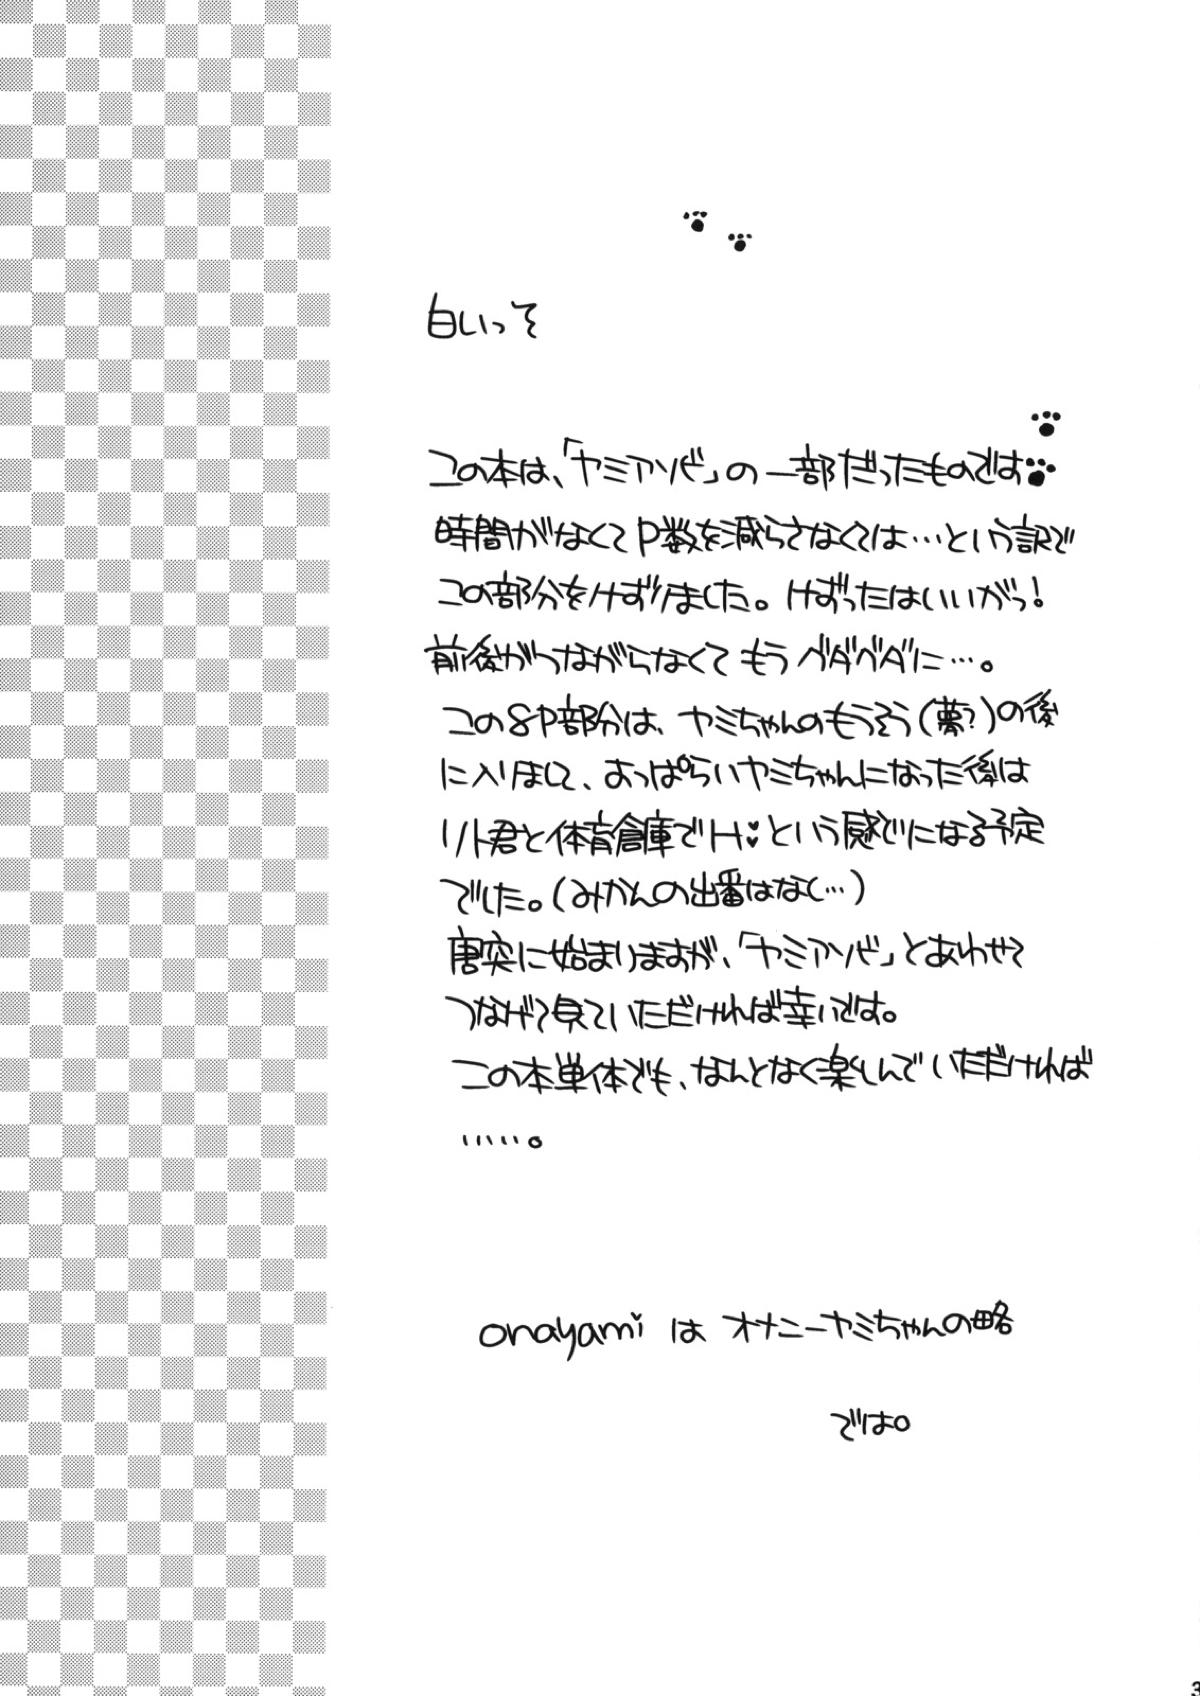 白いっそ
この本は、「ヤミアソビ」の一部だったものです
時間がなくてP数を減らさなくては…という訳で
この部分をけずりました。けずったはいいがっ!
前後がつながらなくてもうグダグダに…。
この8P部分は、ヤミちゃんのもうそう(夢?)の後
に入りまして、よっぱらいヤミちゃんになった後は
リト君と体育倉庫でH♥という感じになる予定
でした。(みかんの出番はなく…)
唐突に始まりますが、「ヤミアソビ」とあわせて
つなげて見ていただければ幸いです。
この本単体でも、なんとなく楽しんでいただければ
……。
onayami は オナニーヤミちゃんの略
では。
3